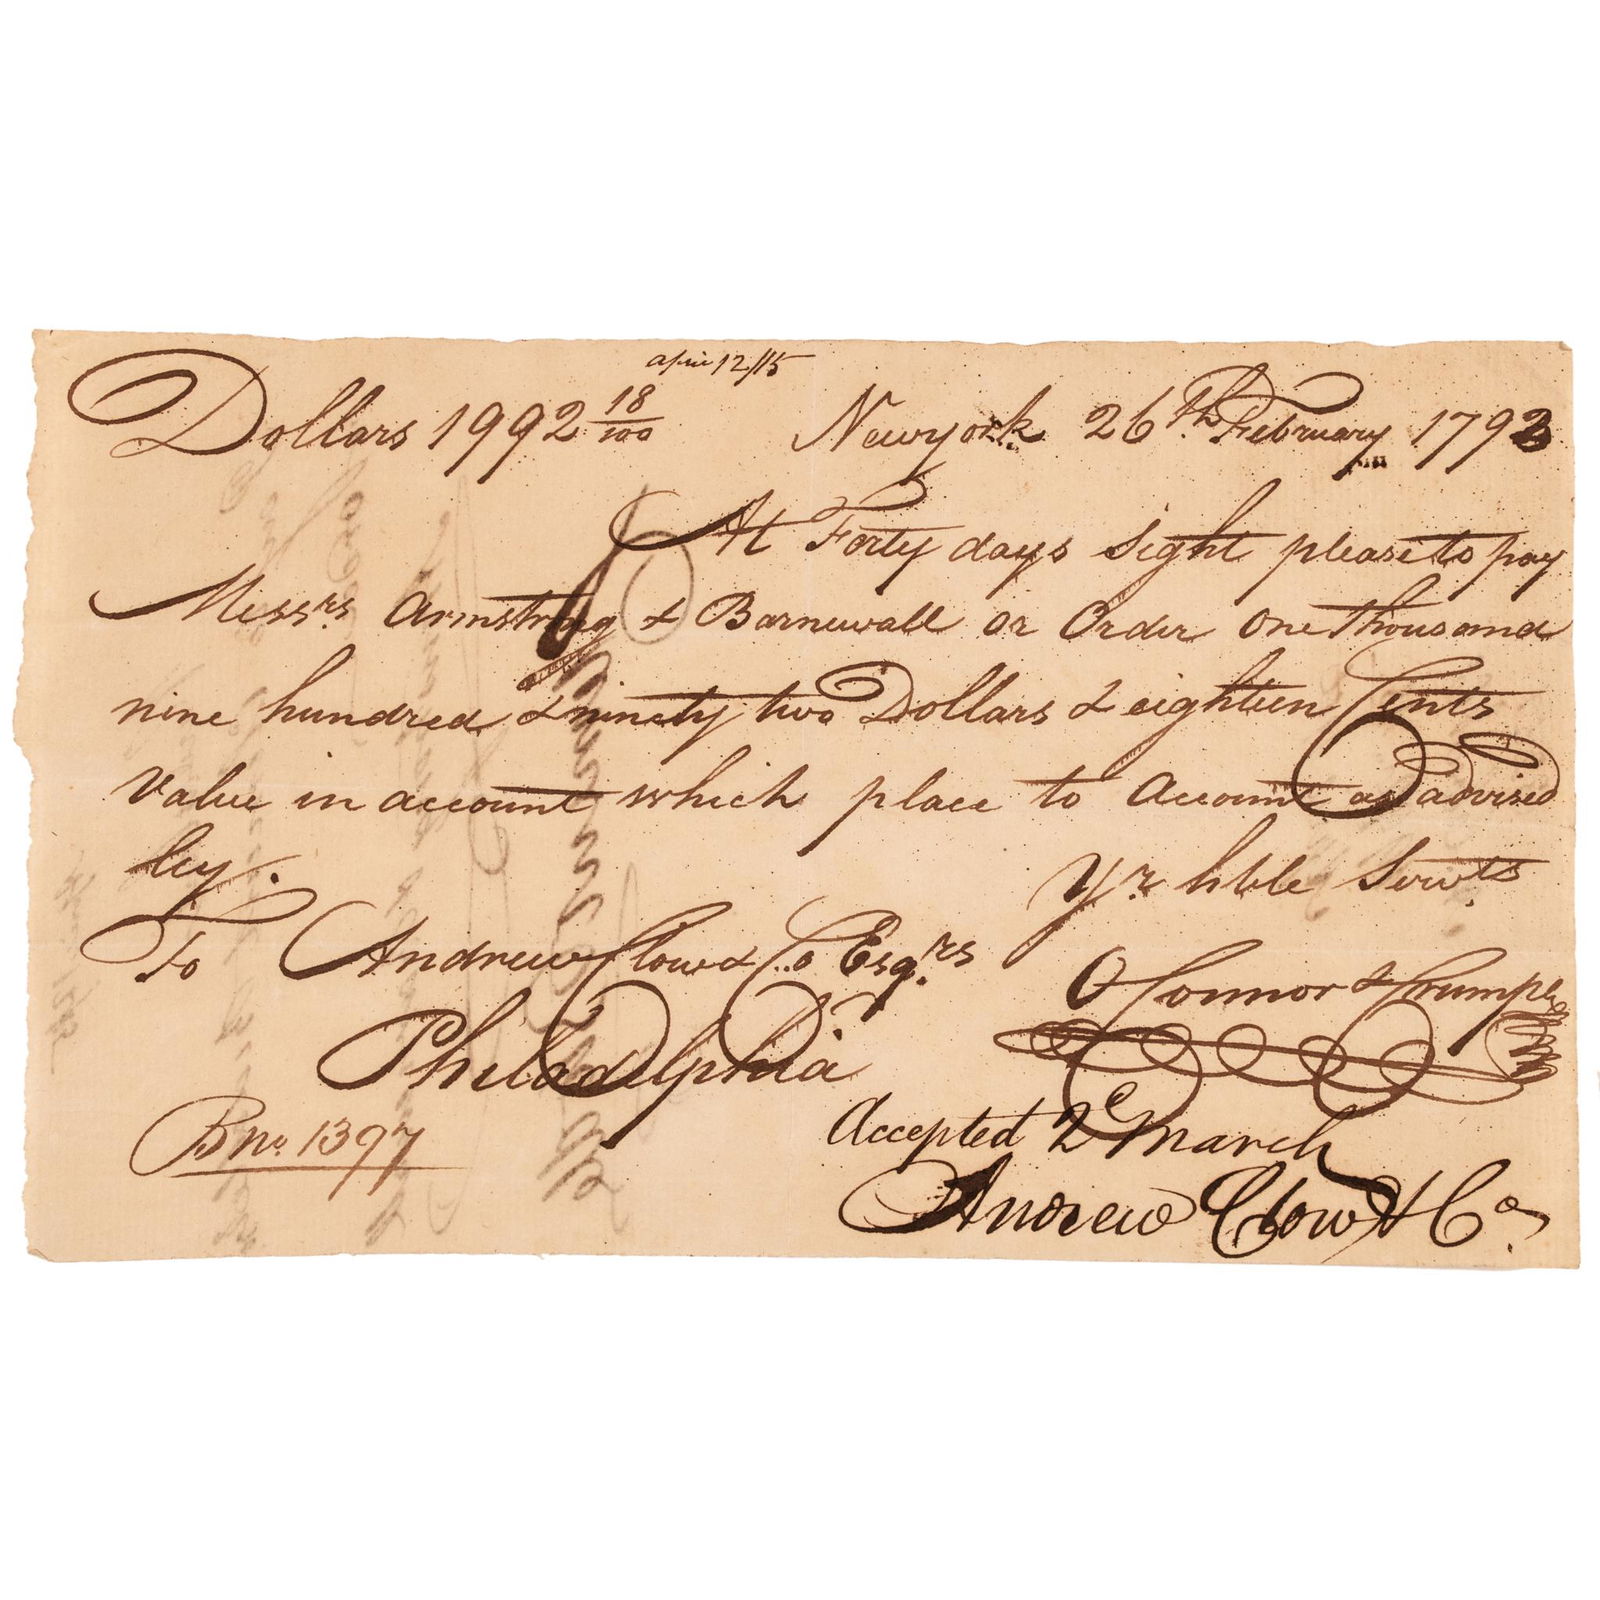 april 12/15
Dollars 1992 18/100 Newyork 26th February 1792
At Forty days Sight please to pay
Messrs Armstrong & Barnewall or Order One thousand
nine hundred & ninety two Dollars & eighteen Cents
Value in account which place to Account as advised
by.
Yr. hble Servts.
To Andrew Clow & Co Esqrs.
O Connor & Crumpe
Philadelphia
Accepted 2e March
B no. 1397
Andrew Clow & Co.